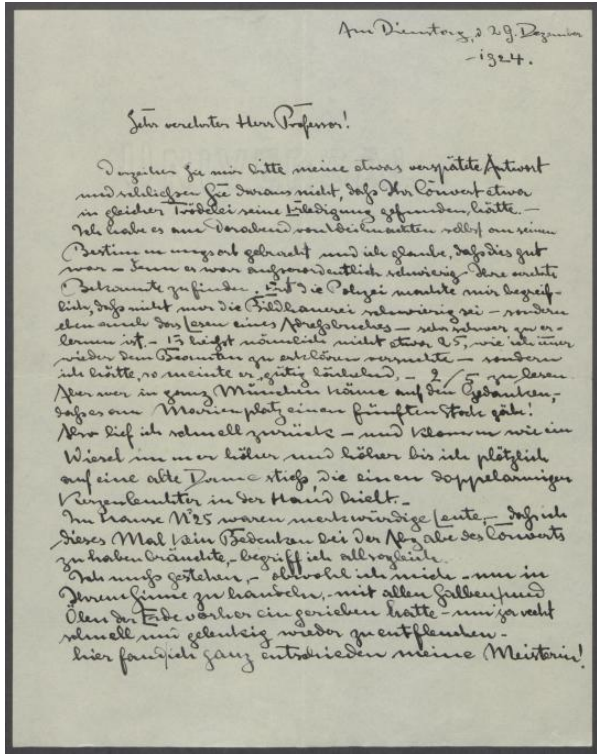 Am Dienstag, d 29. Dezember
- 1924.
Sehr verehrter Herr Professor!
Verzeihen Sie mir bitte meine etwas verspätete Antwort
und schließen Sie daraus nicht, daß Ihr Couvert etwa
in gleicher Trödelei seine Erledigung gefunden hätte. –
Ich habe es am Vorabend von Weihnachten selbst an seinen
Bestimmungsort gebracht und ich glaube, daß dies gut
war – denn es war außerordentlich schwierig – Ihre
Bekannte zu finden. Erst die Polizei machte mir begreif-
lich, daß nicht nur die Bildhauerei schwierig sei – sondern
eben auch das Lesen eines Adreßbuches – sehr schwer zu er-
lernen ist. – Es heißt nämlich nicht etwa 25, wie ich immer
wieder dem Beamten zu erklären versuchte – sondern
ich hätte, so meinte er, gütig lächelnd, – 2/5 zu lesen.
Aber wer in ganz München käme auf den Gedanken,
daß es am Marienplatz einen fünften Stock gäbe!
Also lief ich schnell zurück – und klomm wie ein
Wiesel immer höher und höher bis ich plötzlich
auf eine alte Dame stieß, die einen doppelarmigen
Kerzenleuchter in der Hand hielt. –
Im Hause No 25 waren merkwürdige Leute, – daß ich
dieses Mal kein Bedenken bei der Abgabe des Couverts
zu haben bräuchte, – begriff ich allsogleich.
Ich muß gestehen, – obwohl ich mich – um in
Ihrem Sinne zu handeln, – mit allen Salben und
Ölen der Erde vorher eingerieben hatte – um ja recht
schnell und gelenkig wieder zu entfleuchen –
hier fand ich ganz entschieden meine Meisterin!